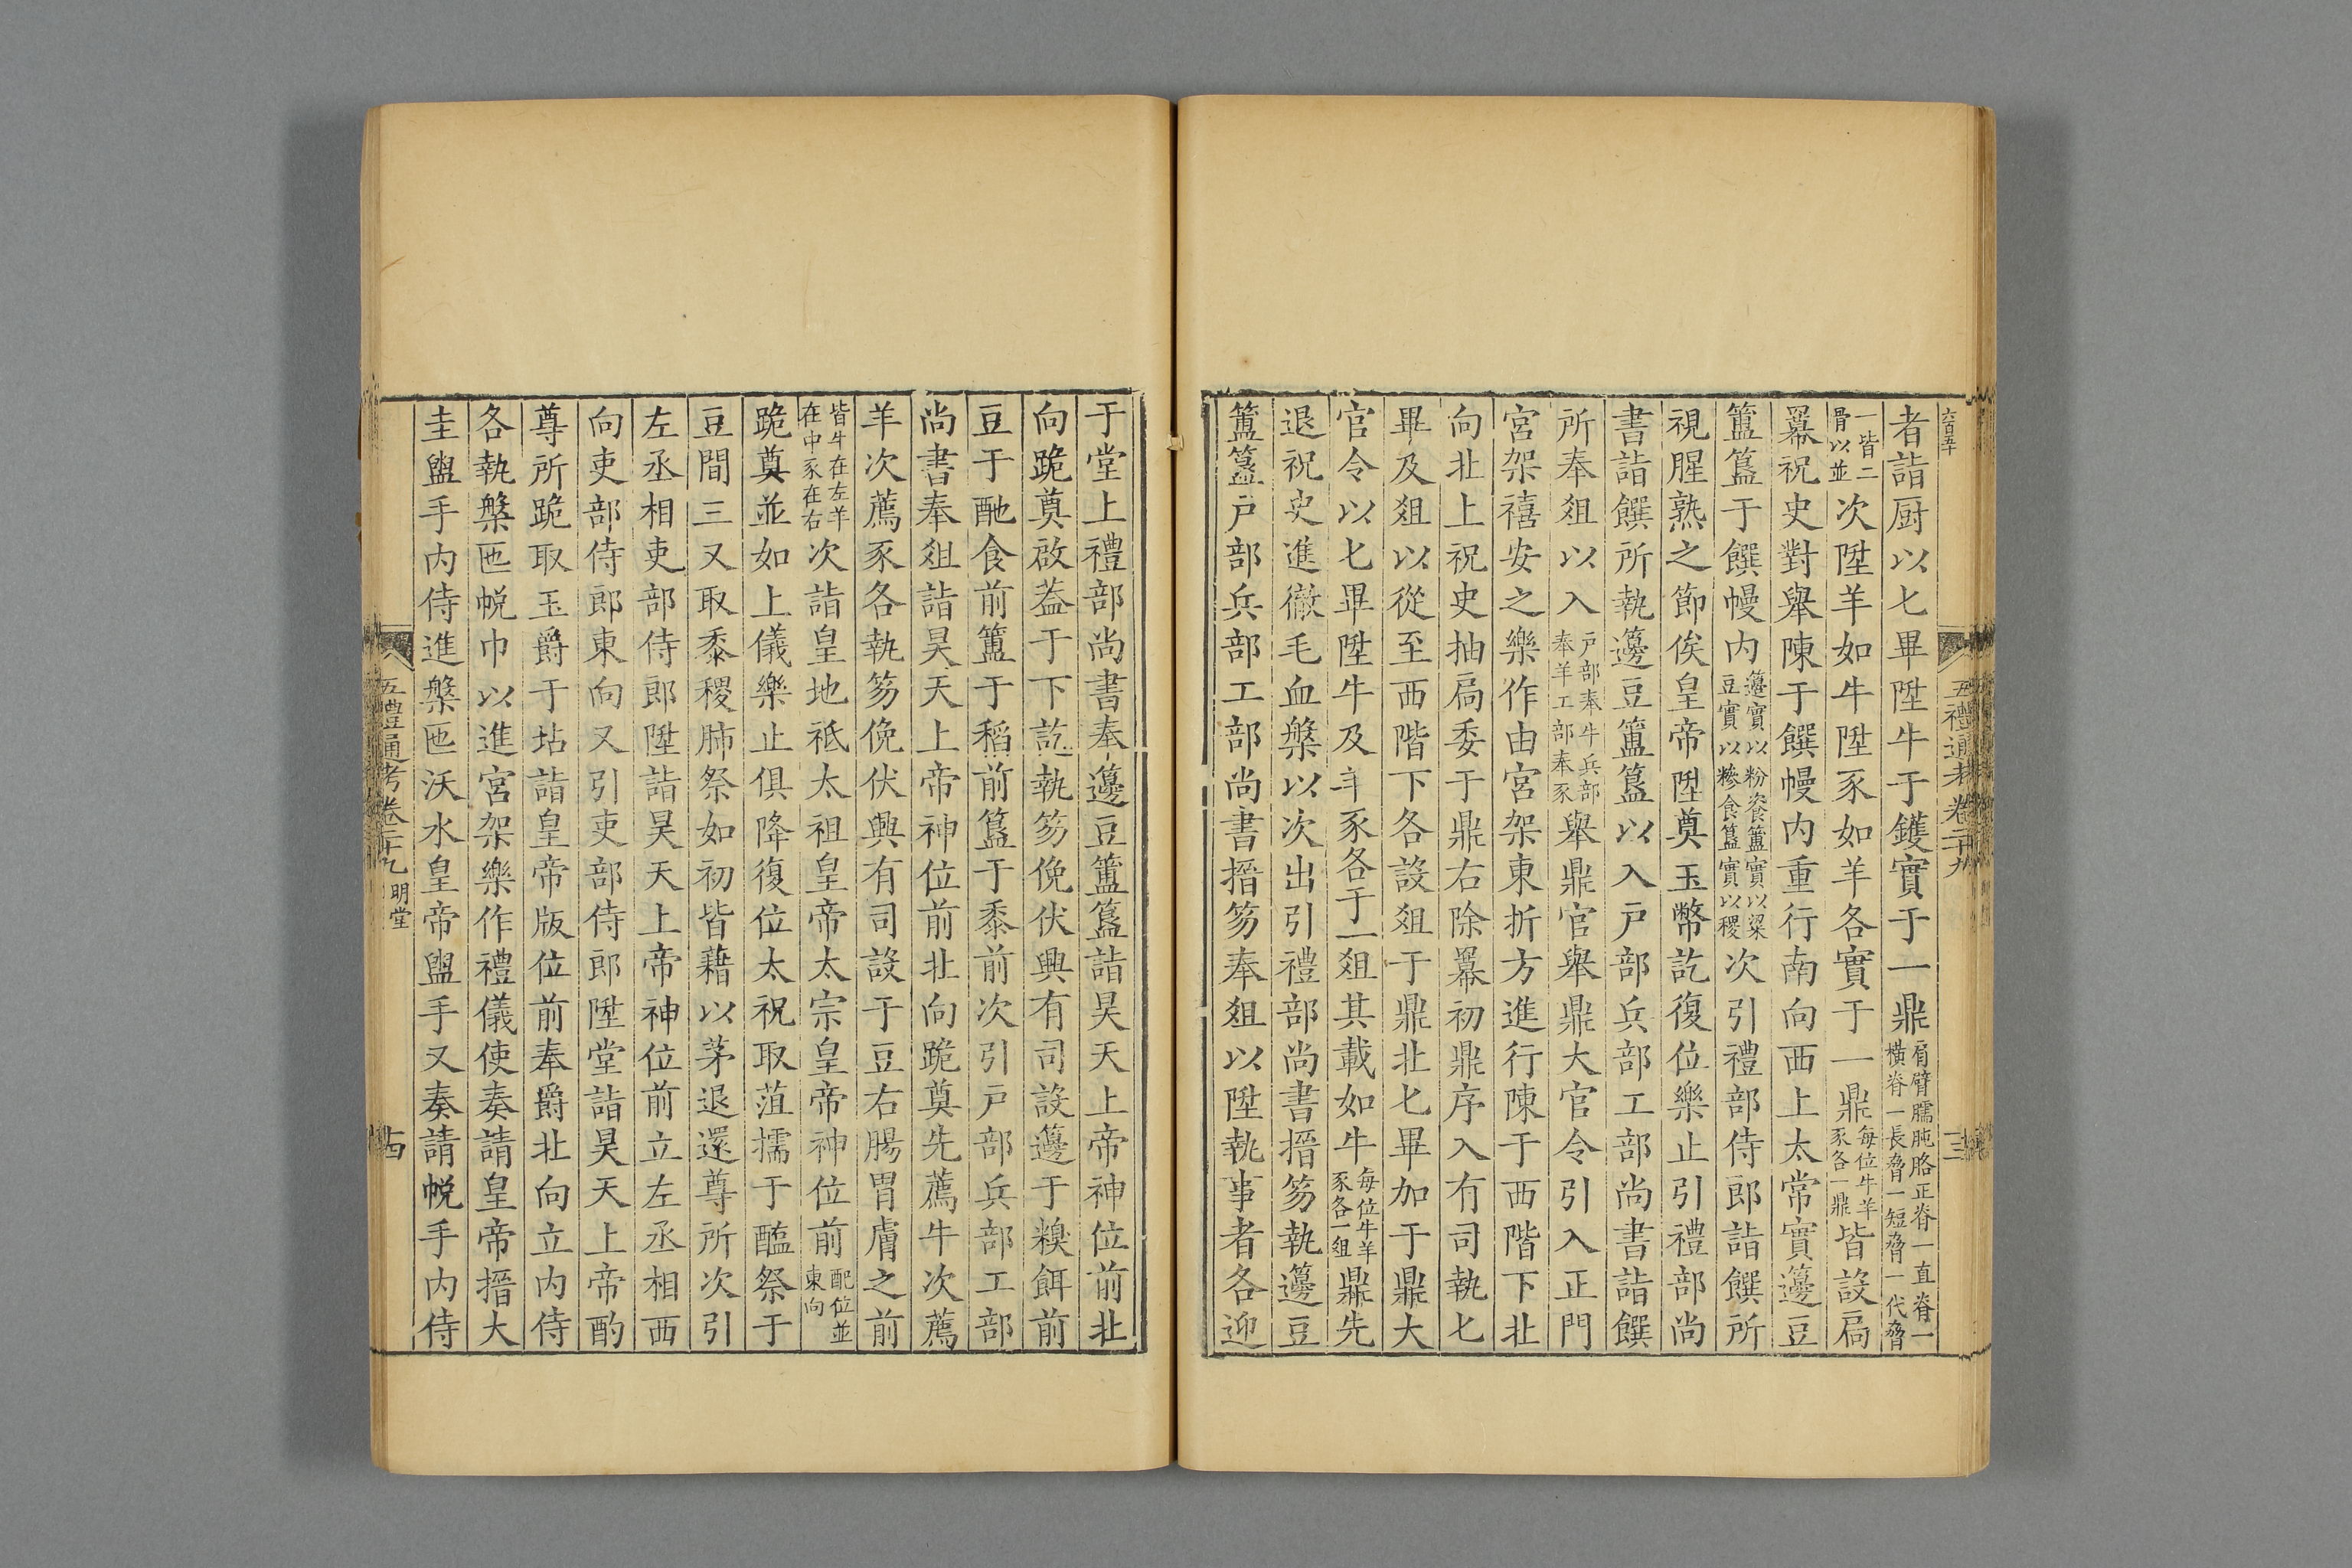 六百五十
五禮通考卷二十九
十三
者詣厨以匕畢陞牛于鑊實于一鼎肩臂臑肫胳正脊一直脊一橫脊一長脅一短脅一代脅
一皆二骨以並次陞羊如牛陞豕如羊各實于一鼎每位牛羊豕各一鼎皆設扃
羃祝史對舉陳于饌幔内重行南向西上太常實籩豆
簠簋于饌幔内籩實以粉餈簠實以粱豆實以糝食簋實以稷次引禮部侍郎詣饌所
視腥熟之節俟皇帝陞奠玉幣訖復位樂止引禮部尚
書詣饌所執籩豆簠簋以入戸部兵部工部尚書詣饌
所奉俎以入戸部奉牛兵部奉羊工部奉豕舉鼎官舉鼎大官令引入正門
宮架禧安之樂作由宮架東折方進行陳于西階下北
向北上祝史抽扃委于鼎右除羃初鼎序入有司執匕
畢及俎以從至西階下各設俎于鼎北匕畢加于鼎大
官令以匕畢陞牛及羊豕各于一俎其載如牛每位牛羊豕各一俎鼎先
退祝史進徹毛血槃以次出引禮部尚書搢笏執籩豆
簠簋戸部兵部工部尚書搢笏奉俎以陞執事者各迎
于堂上禮部尚書奉籩豆簠簋詣昊天上帝神位前北
向跪奠啟葢于下訖執笏俛伏興有司設籩于糗餌前
豆于酏食前簠于稻前簋于黍前次引戸部兵部工部
尚書奉俎詣昊天上帝神位前北向跪奠先薦牛次薦
羊次薦豕各執笏俛伏興有司設于豆右腸胃膚之前
皆牛在左羊在中豕在右次詣皇地祗太祖皇帝太宗皇帝神位前配位並東向
跪奠並如上儀樂止俱降復位太祝取菹擩于醢祭于
豆間三又取黍稷肺祭如初皆藉以茅退還尊所次引
左丞相吏部侍郎陞詣昊天上帝神位前立左丞相西
向吏部侍郎東向又引吏部侍郎陞堂詣昊天上帝酌
尊所跪取玉爵于坫詣皇帝版位前奉爵北向立内侍
各執槃匜帨巾以進宮架樂作禮儀使奏請皇帝搢大
圭盥手内侍進槃匜沃水皇帝盥手又奏請帨手内侍
五禮通考卷二十九 明堂
十四